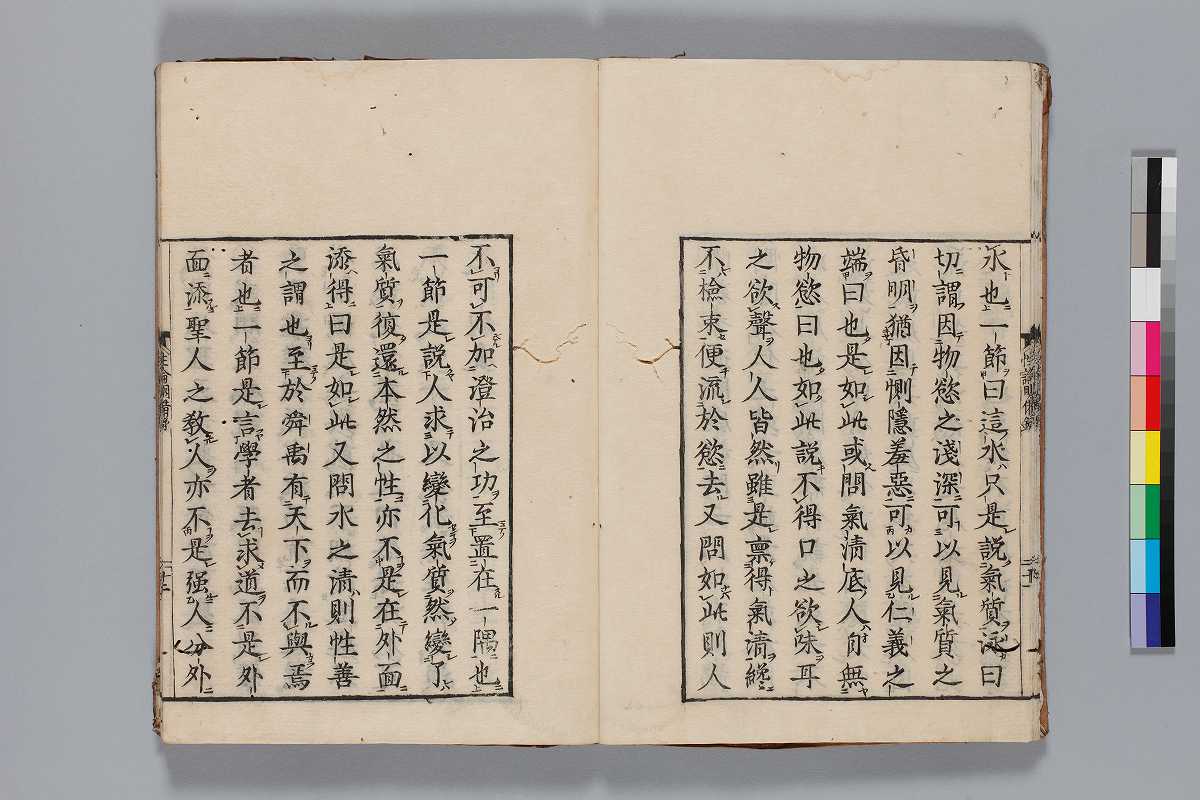 水也一節曰這水只是說氣質泳曰
切謂因物慾之淺深可以見氣質之
昏明猶因惻隱羞惡可以見仁義之
端曰也是如此或問氣淸底人自無
物慾曰也如此說不得口之欲味耳
之欲聲人人皆然雖是稟得氣淸纔
不檢束便流於慾去又問如此則人
不可不加澄治之功至置在一隅也
一節是說人求以變化氣質然變了
氣質復還本然之性亦不是在外面
添得曰是如此又問水之淸則性善
之謂也至於舜禹有天下而不與焉
者也一節是言學者去求道不是外
面添聖人之敎人亦不是强人分外